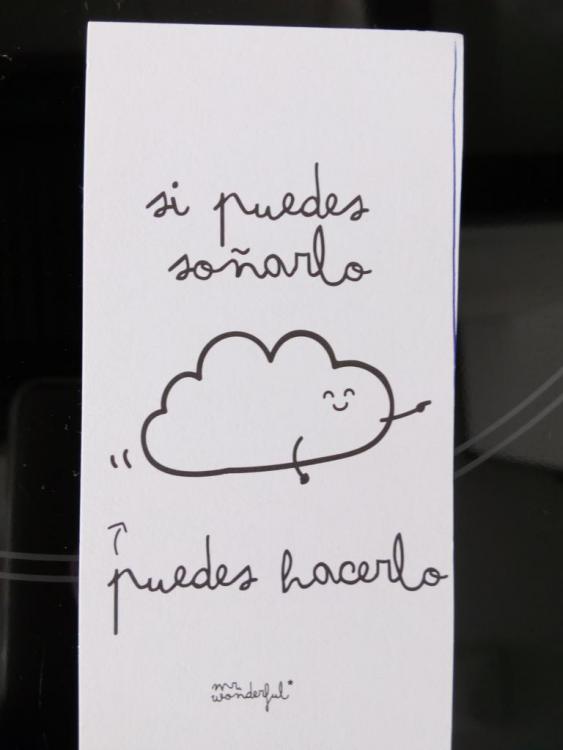 si puedes
soñarlo
puedes hacerlo
mr.
wonderful*